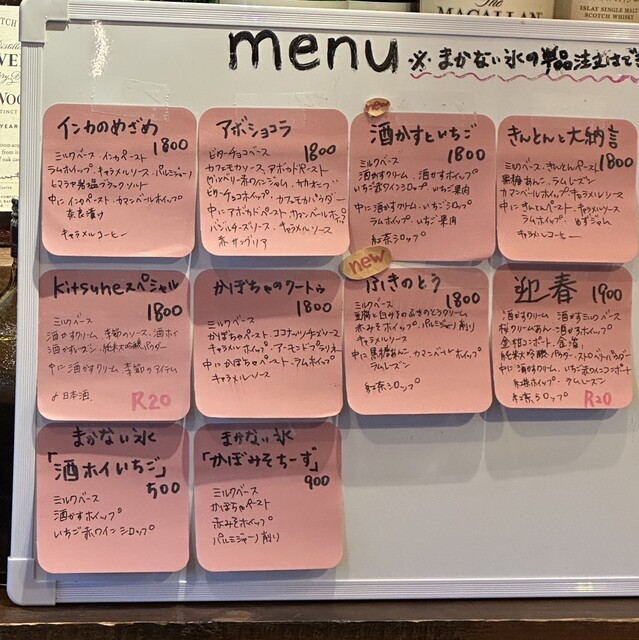 menu ※まかない氷の単品注文はでき
インカのめざめ
1800
ミルクベース・インカペースト
ラムホイップ・キャラメルソース・パルミジャーノ
ヒマラヤ岩塩ブラックソルト
中にインカペースト・カマンベールホイップ
奈良漬け
キャラメルコーヒー
アボショコラ
1800
ビターチョコベース
カフェモカソース、アボカドペースト
ビターチョコホイップ、カフェモカパウダー
中にアボカドペースト カマンベールホイップ
キャラメルソース
赤サングリア
new
酒かすといちご
1800
ミルクベース
酒かすクリーム、酒かすホイップ
いちご赤ワインシロップ、いちご果肉
中に酒かすクリーム・いちごシロップ
ラムホイップ、いちご果肉
紅茶シロップ
きんとんと大納言
1800
ミルクベース・きんとんペースト
黒糖あんこ・ラムレーズン
カマンベールホイップ・キャラメルソース
中にきんとんペースト、キャラメルソース
ラムホイップ
キャラメルコーヒー
kitsuneスペシャル
1800
ミルクベース
酒かすクリーム、季節のソース、酒ホイ
酒かすレーズン・純米大吟醸パウダー
中に酒かすクリーム 季節のアイテム
日本酒
R20
かぼちゃのクートゥ
1800
ミルクベース
かぼちゃペースト、ココナッツチーズソース
キャラメルホイップ アーモンドプラリネ
中にかぼちゃペースト・ラムホイップ
キャラメルソース
new
ふきのとう
1800
ミルクベース
豆腐と白みそのふきのとうクリーム
赤みそホイップ、パルミジャーノ削り
キャラメルソース
中に黒糖あんこ、カマンベールホイップ
ラムレーズン
紅茶シロップ
迎春
1900
酒かすクリーム 酒かすソース ミルクベース
桜クリームあん・酒かすホイップ
金柑コンポート、金箔
純米大吟醸パウダー、ストロベリーパウダー
中に酒かすクリーム、いちご赤ワインコンポート
紅桜ホイップ、ラムレーズン
紅茶シロップ
R20
まかない氷
「酒ホイいちご」
500
ミルクベース
酒かすホイップ
いちご赤ワインシロップ
まかない氷
「かぼみそちーず」
900
ミルクベース
かぼちゃペースト
赤みそホイップ
パルミジャーノ削り
The
MACALLAN
ISLAY SINGLE MALT
SCOTCH WHISKY
YEARS